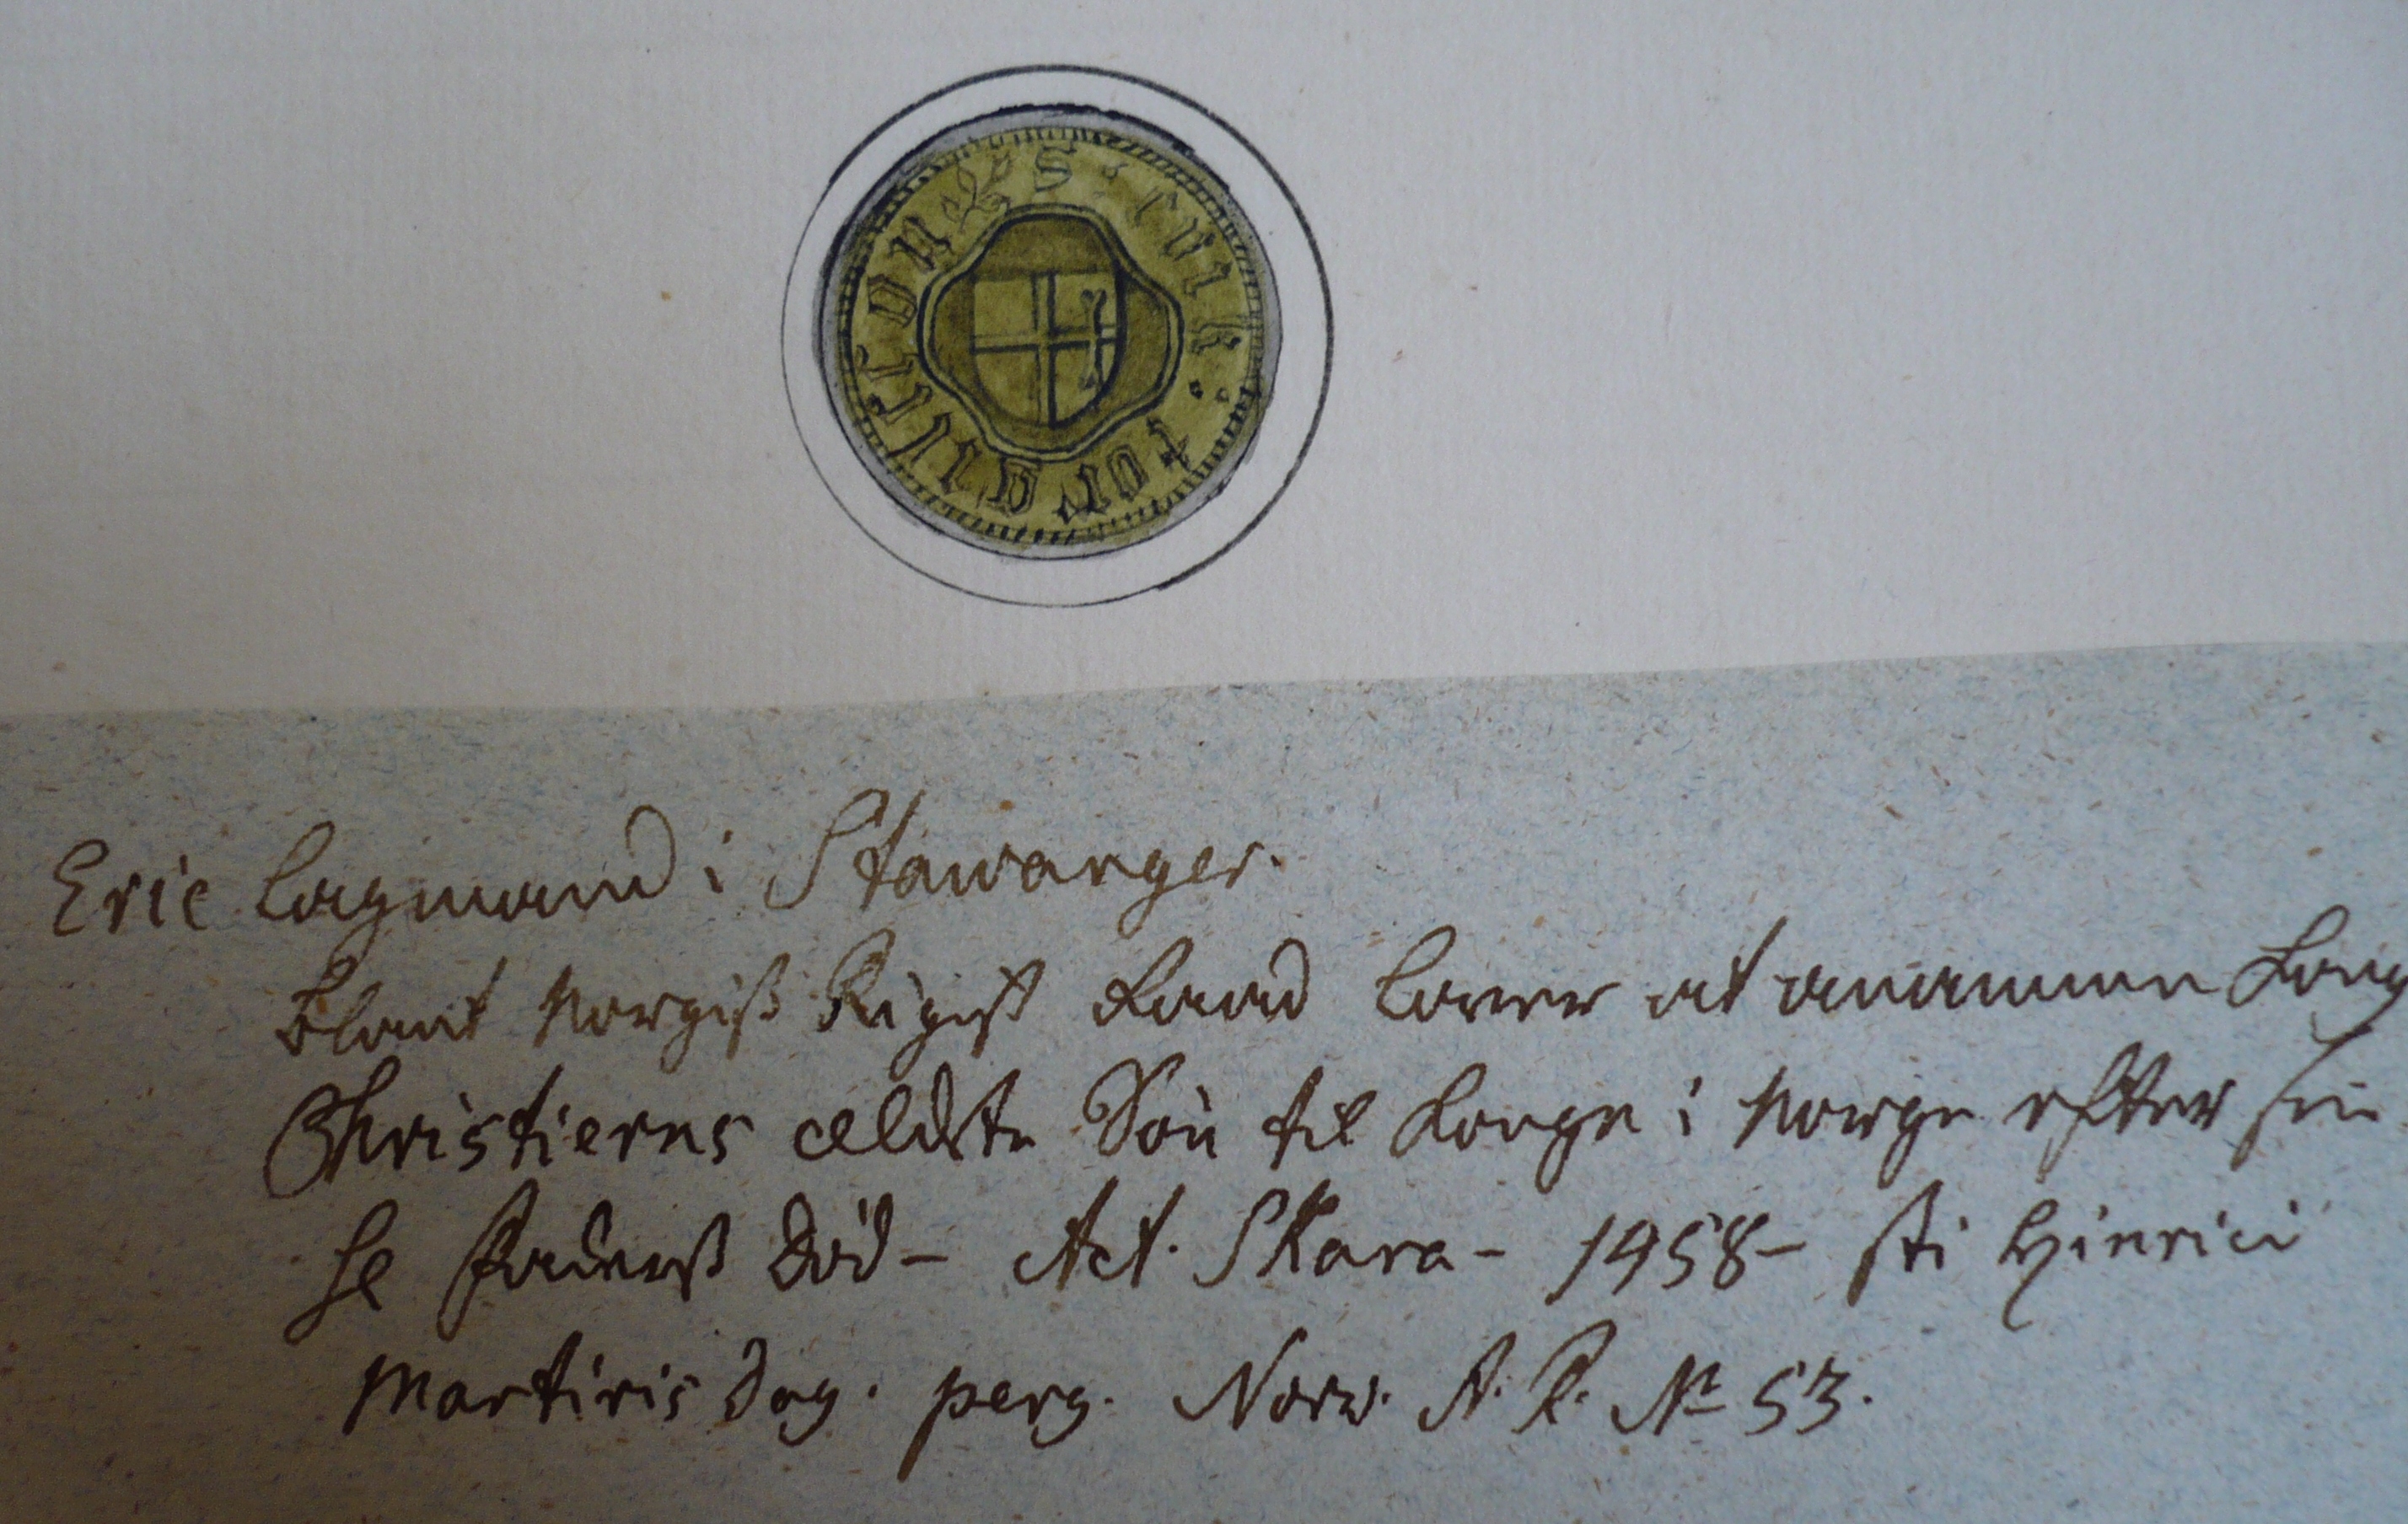 S : erik : tor
Eric Lagmand i Stawanger.
blant Norgiß Rigist Raad lower at anamme Kong
Christierns ældste Sön til Konge i Norge efter hin
he Faderß Död – Act. Skara – 1458 – sti Hinrici
Martiris Dag. perg. Norw. A. R. No 53.